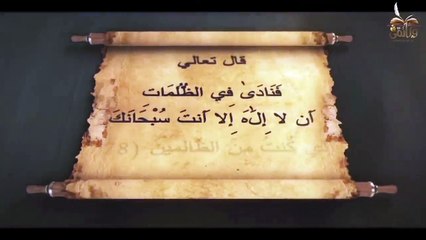 قال تعالي
فَنَادَىٰ فِي الظُّلُمَات
أَن لا إِلَٰهَ إِلا أَنتَ سُبْحَانَكَ
كُنتُ مِنَ الظَّالِمِينَ (8